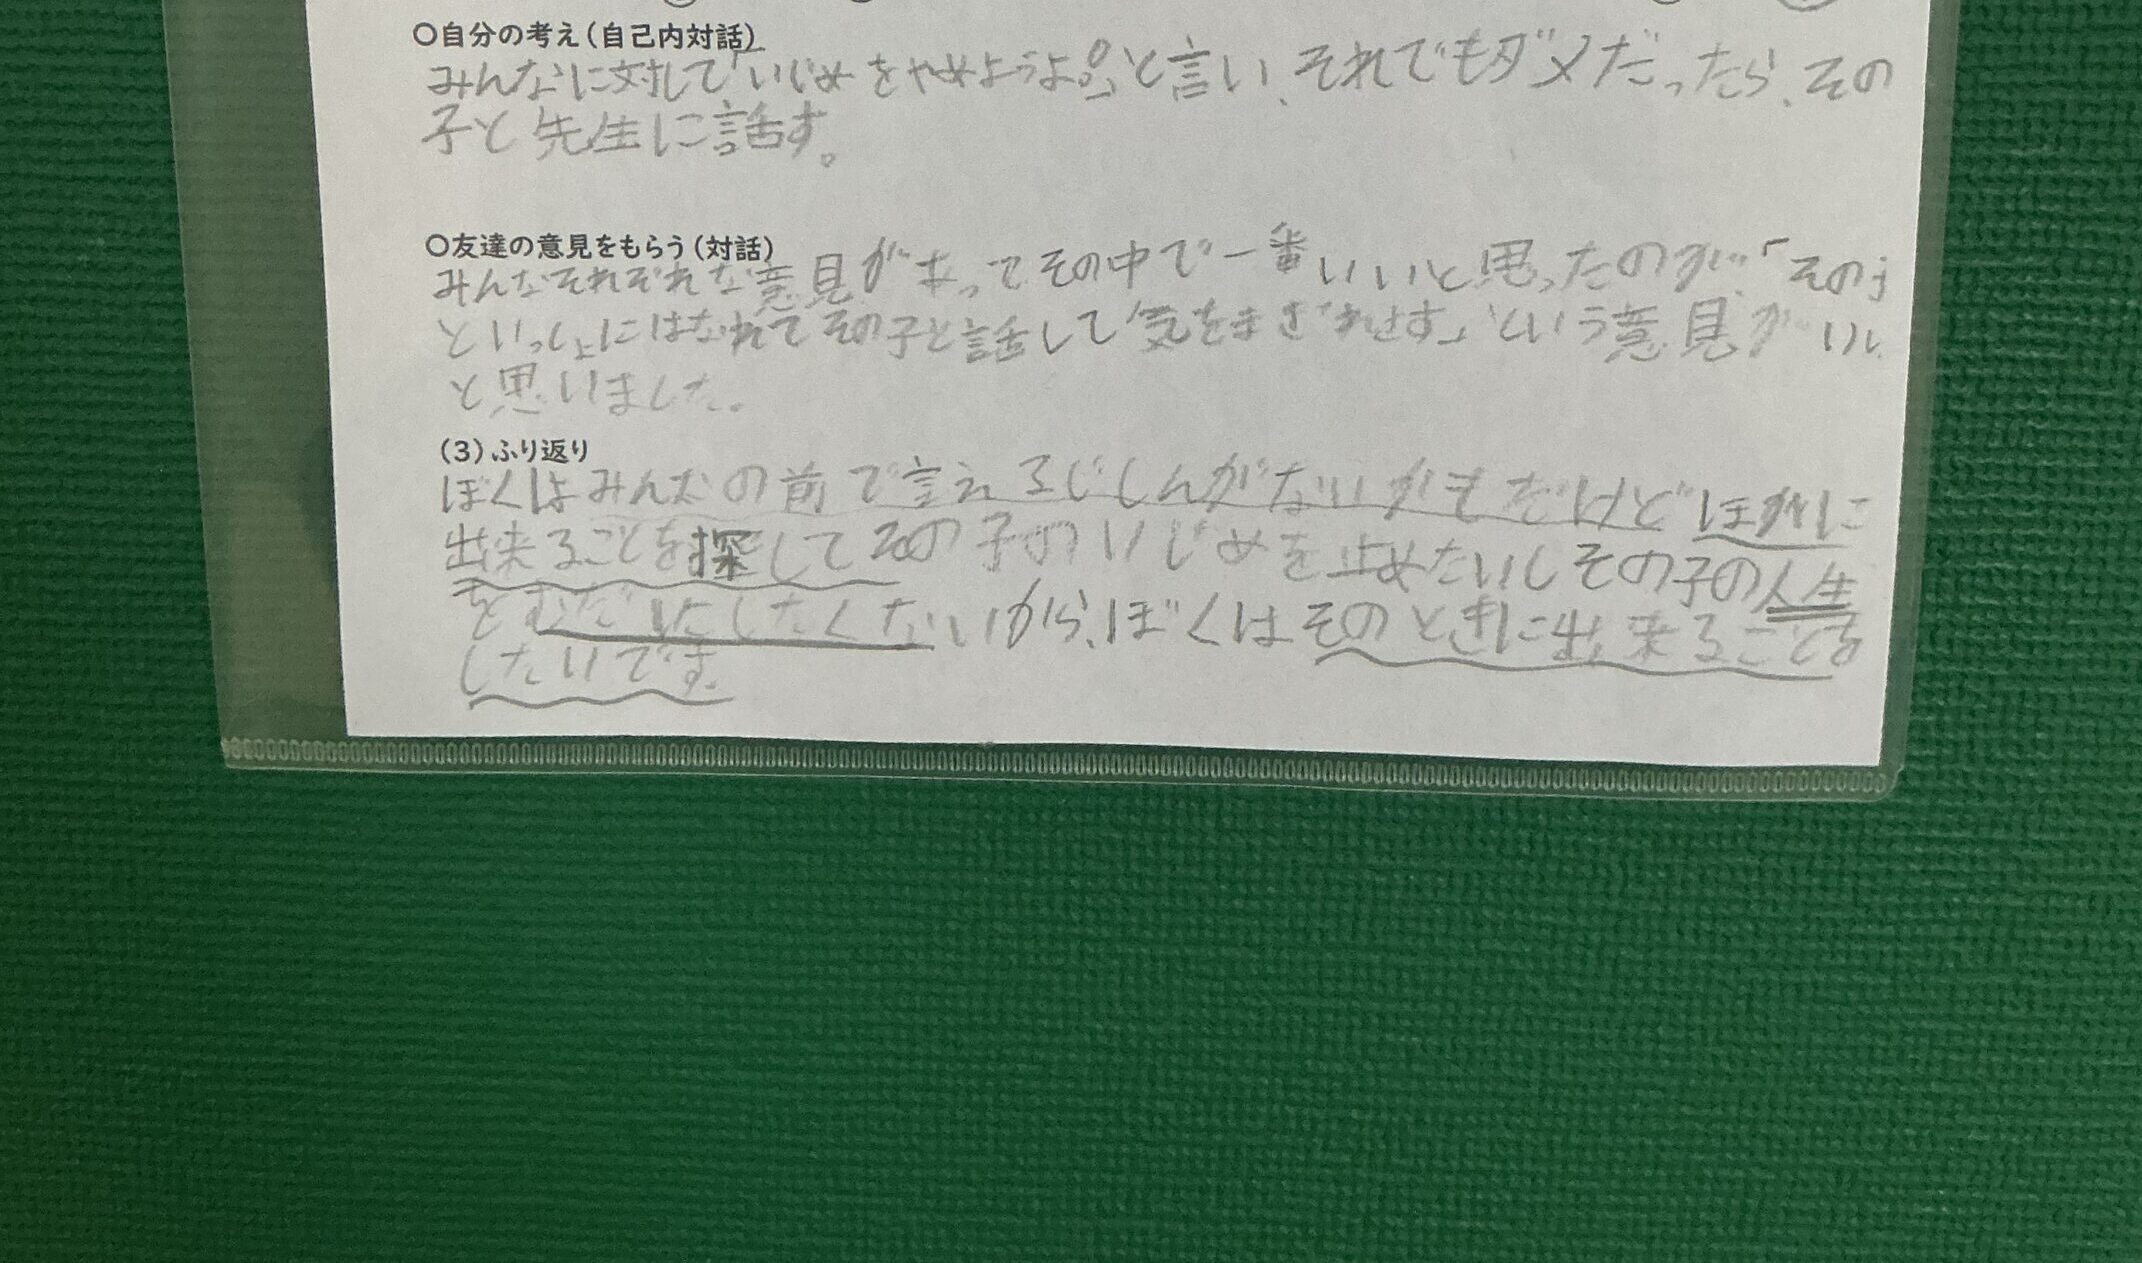 ○自分の考え(自己内対話)
みんなに対して「いじめをやめようよ。」と言い、それでもダメだったら、その
子と先生に話す。
○友達の意見をもらう(対話)
みんなそれぞれな意見があってその中で一番いいと思ったのが「その子
といっしょにはなれてその子と話して気をまぎれさす」という意見がいい
と思いました。
(3)ふり返り
ぼくはみんなの前で言えるじしんがないかもだけどほかに
出来ることを探してその子のいじめを止めたいしその子の人生
をむだにしたくないから、ぼくはそのときに出来ることを
したいです。